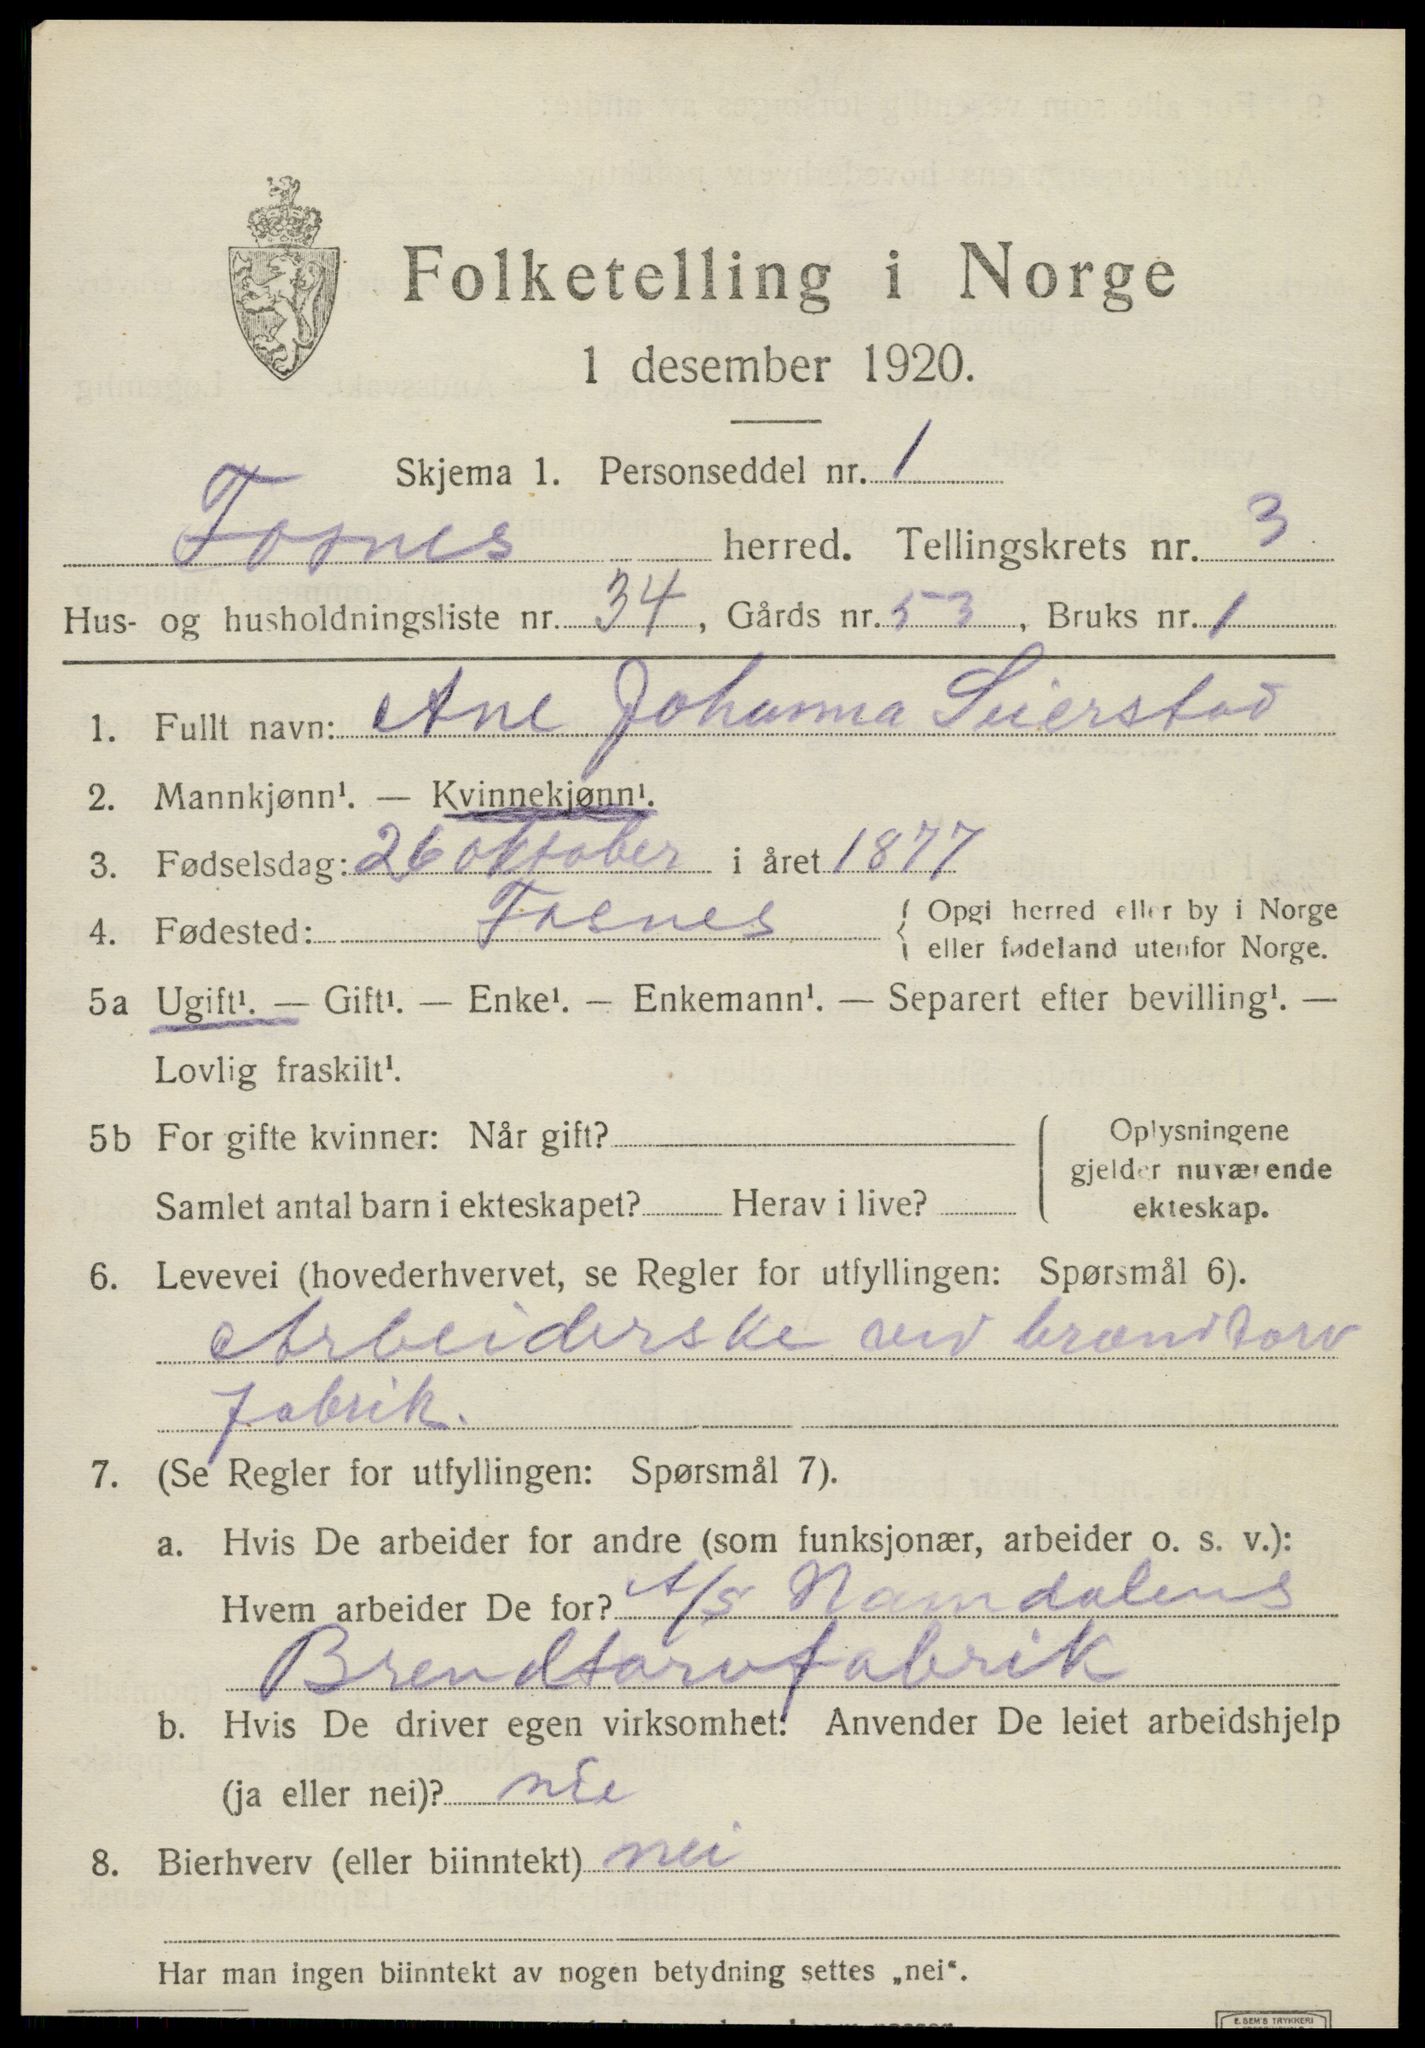 Folketelling i Norge
1 desember 1920.
Skjema 1. Personseddel nr. 1
Fosnes herred. Tellingskrets nr. 3
Hus- og husholdningsliste nr. 34, Gårds nr. 53, Bruks nr. 1
1. Fullt navn: Ane Johanna Seierstad
2. Mannkjønn¹. — Kvinnekjønn¹.
3. Fødselsdag: 26 oktober i året 1877
4. Fødested: Fosnes { Opgi herred eller by i Norge
eller fødeland utenfor Norge.
5a Ugift¹. — Gift¹. — Enke¹. — Enkemann¹. — Separert efter bevilling¹. —
Lovlig fraskilt¹.
5b For gifte kvinner: Når gift?
Samlet antal barn i ekteskapet? Herav i live?
Oplysningene
gjelder nuværende
ekteskap.
6. Levevei (hovederhvervet, se Regler for utfyllingen: Spørsmål 6).
Arbeiderske ved brændtorv
fabrik.
7. (Se Regler for utfyllingen: Spørsmål 7).
a. Hvis De arbeider for andre (som funksjonær, arbeider o. s. v.):
Hvem arbeider De for? A/S Namdalens
Brendtorvfabrik
b. Hvis De driver egen virksomhet: Anvender De leiet arbeidshjelp
(ja eller nei)? nei
8. Bierhverv (eller biinntekt) nei
Har man ingen biinntekt av nogen betydning settes „nei“.
E. SEM'S TRYKKERI